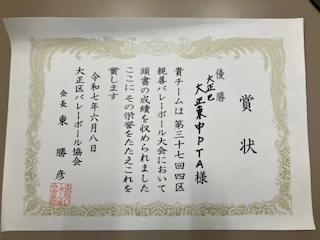 賞状
優勝
大正区
大正東中PTA様
貴チームは第三十七回四区
親善バレーボール大会において
頭書の成績を収められました
ここにその栄誉をたたえこれを
賞します
令和七年六月八日
大正区バレーボール協会
会長 東 勝彦